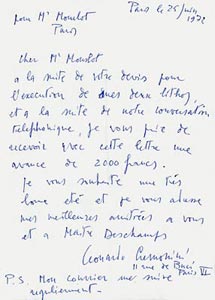 Paris le 25 juin 1972
pour Mr Mourlot
Paris
Cher Mr Mourlot
a la suite de votre devis pour
l'execution de mes deux lithos,
et a la suite de notre conversation
telephonique, je vous prie de
recevoir avec cette lettre une
avance de 2000 francs.
Je vous souhaite une très
bonne été et je vous adresse
mes meilleures amitiées a vous
et a Maître Deschamps
Leonardo Cremonini
11 rue de Buci
Paris VI
P.S. Mon courrier me suive
regulierement.